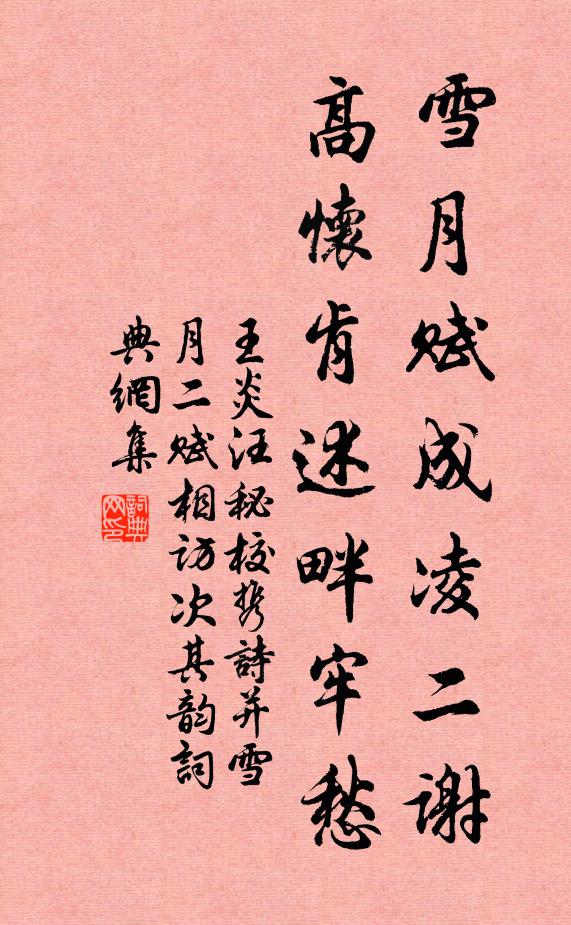 雪月赋成凌二谢
高懷肯述畔牢愁
王炎汪秘校携詩并雪
月二赋相访次其韵詞
典網集
詞典
网印